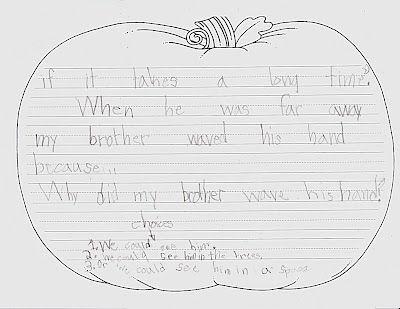 if it takes a long time?
When he was far away
my brother waved his hand
because...
Why did my brother wave his hand?
choices
1. We could see him.
2. We could see him up the trees.
3. Or we could see him in a space